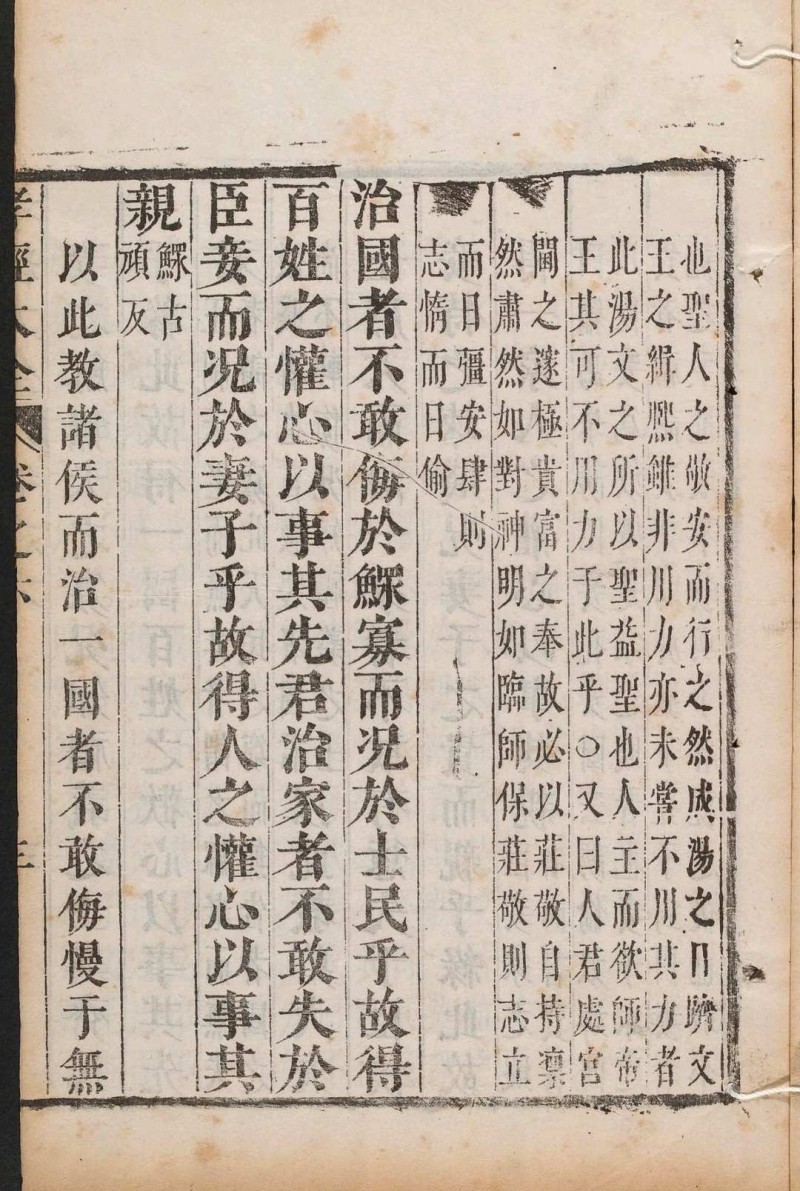 也聖人之敬安而行之然成湯之日躋文
王之緝熈雖非用力亦未嘗不用其力者
此湯文之所以聖益聖也人主而欲師帝
王其可不用力于此乎○又曰人君處宮
閫之邃極貴富之奉故必以莊敬自持凛
然肅然如對神明如臨師保莊敬則志立
而日彊安肆則
志惰而日偷
治國者不敢侮於鰥寡而况於士民乎故得
百姓之懽心以事其先君治家者不敢失於
臣妾而况於妻子乎故得人之懽心以事其
親
鰥古
頑反
以此教諸侯而治一國者不敢侮慢于無
孝經大全 卷之六